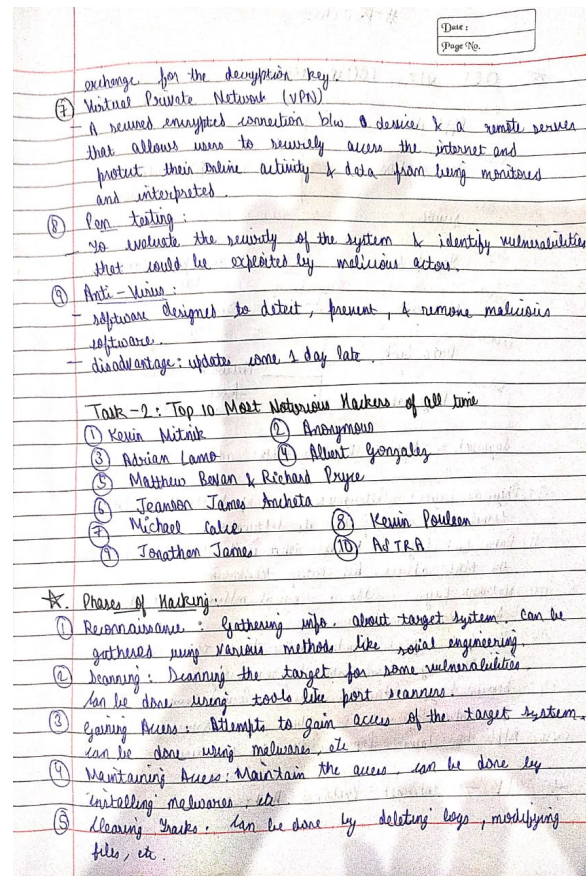 Date :
Page No.
exchange for the decryption key.
⑦ Virtual Private Network (VPN)
— A secured encrypted connection b/w a device & a remote server
that allows users to securely access the internet and
protect their online activity & data from being monitored
and interpreted.
⑧ Pen testing :
— To evaluate the security of the system & identify vulnerabilities
that could be exploited by malicious actors.
⑨ Anti-Virus :
— software designed to detect, prevent, & remove malicious
software.
— disadvantage : updates come 1 day late.
Task-2 : Top 10 Most Notorious Hackers of all time
① Kevin Mitnik ② Anonymous
③ Adrian Lamo ④ Albert Gonzalez
⑤ Matthew Bevan & Richard Pryce
⑥ Jeanson James Ancheta
⑦ Michael Calce ⑧ Kevin Poulsen
⑨ Jonathan James ⑩ ASTRA
☆. Phases of Hacking :
① Reconnaissance : Gathering info. about target system. can be
gathered using various methods like social engineering.
② Scanning : Scanning the target for some vulnerabilities
can be done using tools like port scanners.
③ Gaining Access : Attempts to gain access of the target system.
can be done using malwares, etc
④ Maintaining Access : Maintain the access, can be done by
installing malwares, etc.
⑤ Clearing Tracks. can be done by deleting logs, modifying
files, etc.